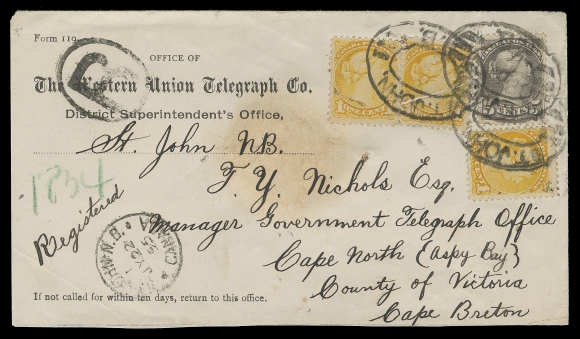 Form 119.
OFFICE OF
The Western Union Telegraph Co.
District Superintendent's Office,
St. John NB.
1834
Registered
F. Y. Nichols Esq.
Manager Government Telegraph Office
Cape North (Aspy Bay)
County of Victoria
Cape Breton
If not called for within ten days, return to this office.
R
ONE CENT
ST. JOHN
CANADA